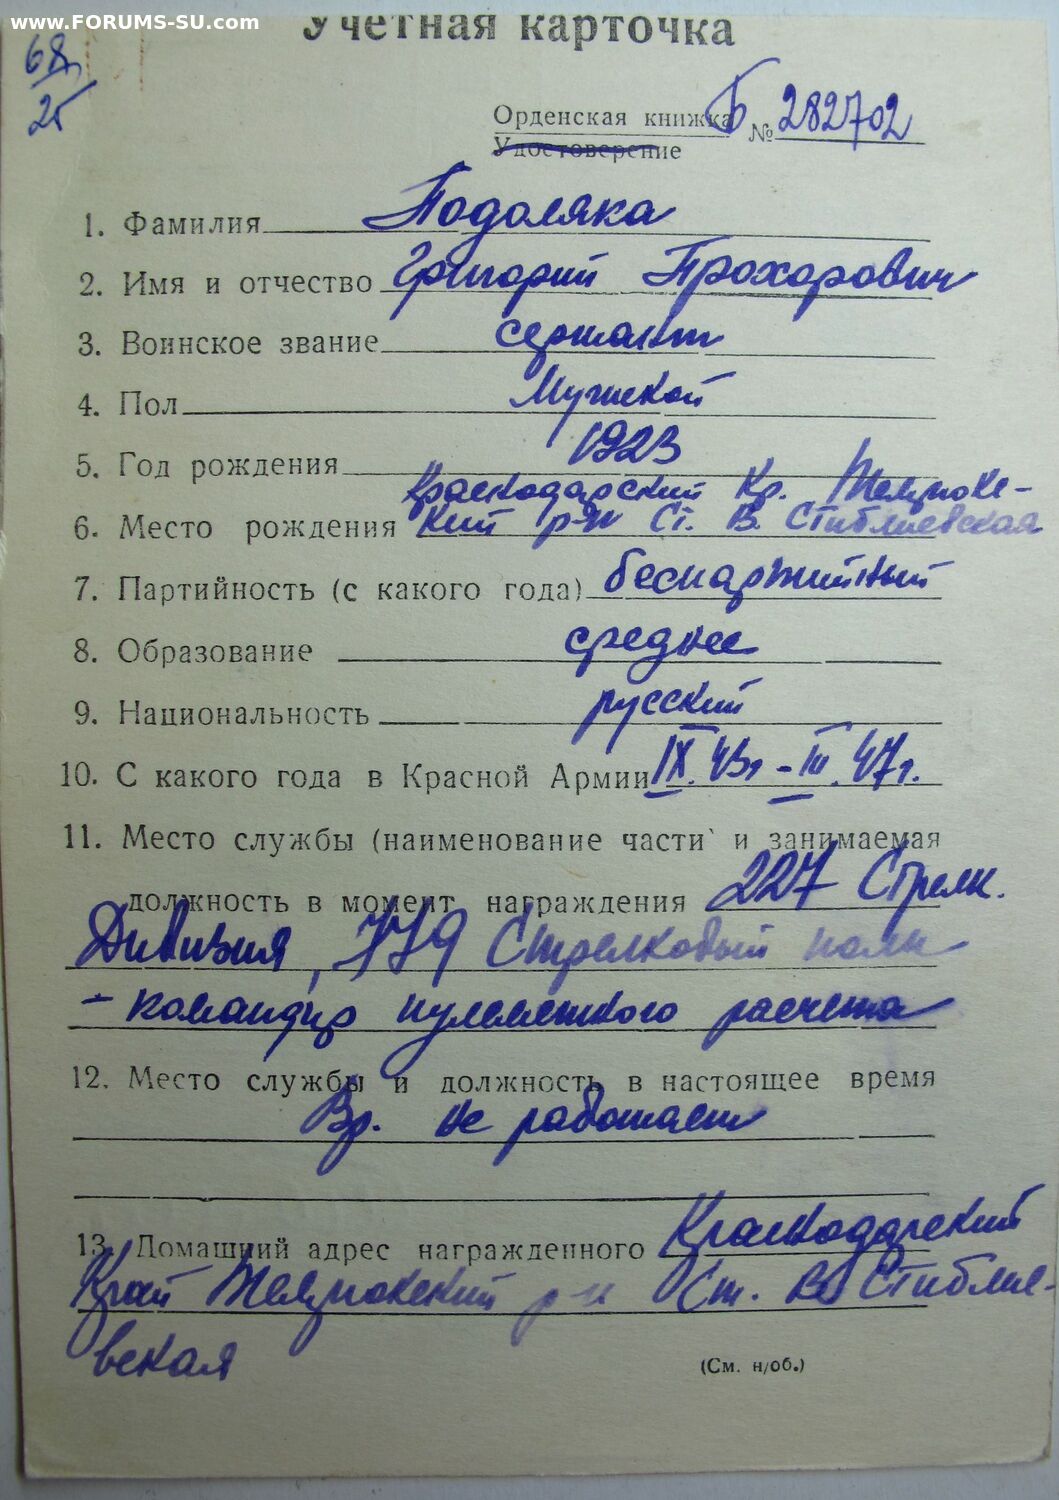 www.FORUMS-SU.com
Учетная карточка
68
25
Орденская книжка Б № 282702
Удостоверение
1. Фамилия Подоляка
2. Имя и отчество Григорий Прохорович
3. Воинское звание сержант
4. Пол Мужской
5. Год рождения 1923
Краснодарский Кр. Темрюкс-
6. Место рождения кий р-н Ст. В. Стиблиевская
7. Партийность (с какого года) беспартийный
8. Образование среднее
9. Национальность русский
10. С какого года в Красной Армии IX.43г - III.47г.
11. Место службы (наименование части и занимаемая
должность в момент награждения 227 Стрелк.
Дивизия, 779 Стрелковый полк
- командир пулеметного расчета
12. Место службы и должность в настоящее время
Вр. не работает
13. Домашний адрес награжденного Краснодарский
Край Темрюкский р-н Ст. Стиблие-
вская
(См. н/об.)